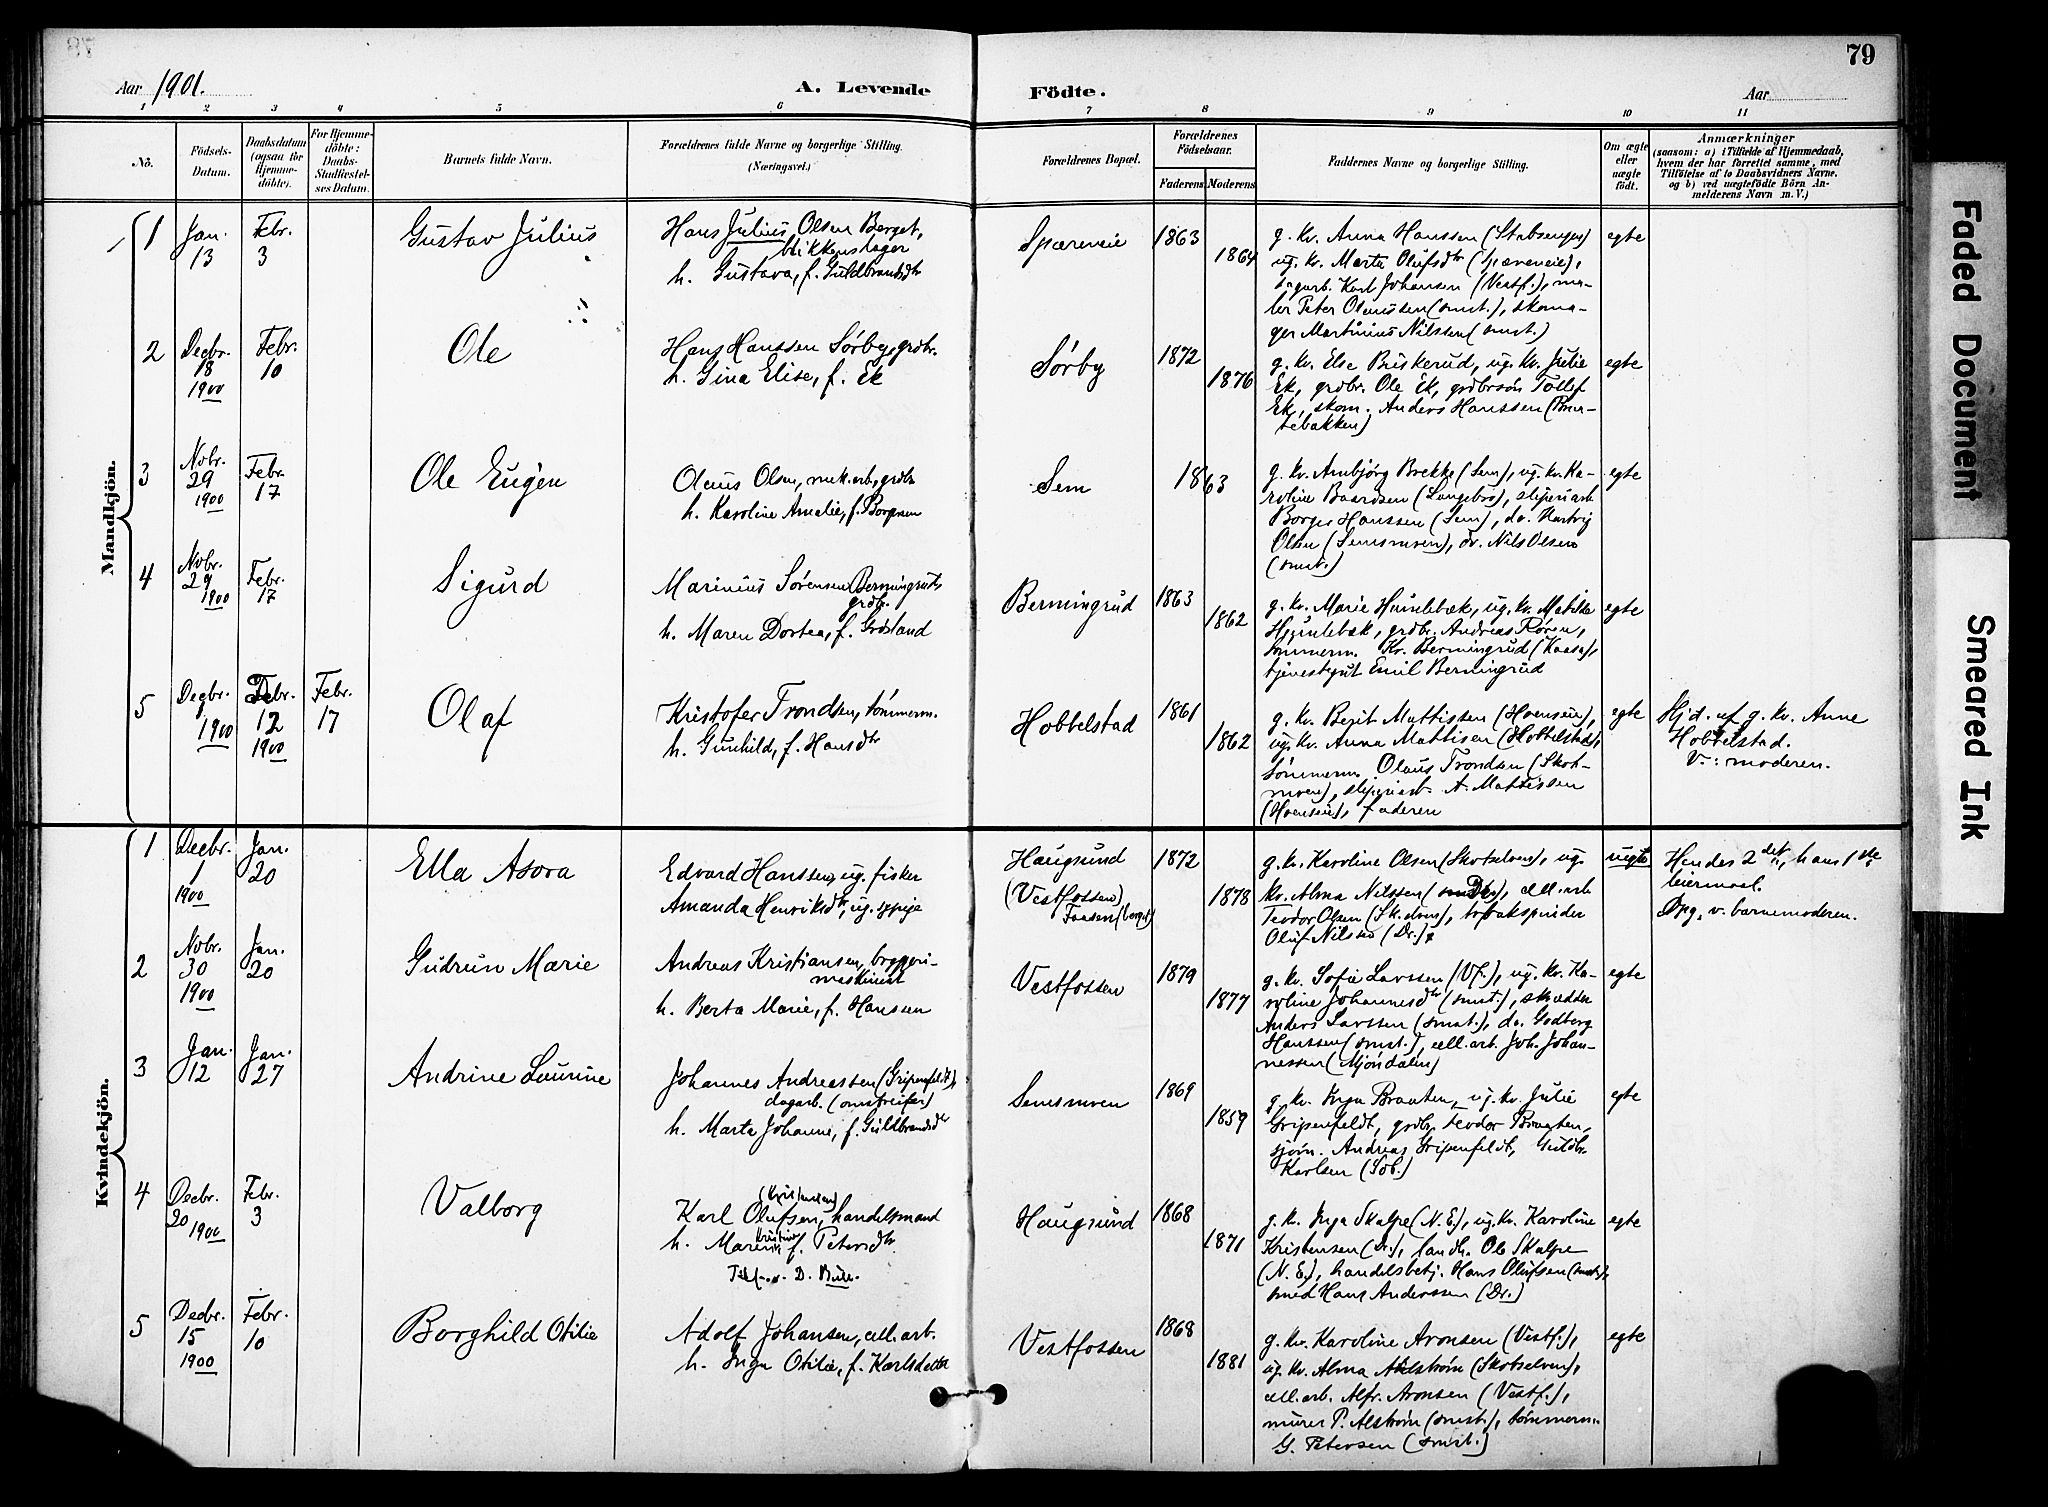 79
Aar 1901.
A. Levende Födte.
Aar
1 2 3 4 5 6 7 8 9 10 11
No.
Födsels-Datum.
Daabsdatum (ogsaa for Hjemme-döbte).
For Hjemme-döbte: Daabs-Stadfæstel-ses Datum.
Barnets fulde Navn.
Forældrenes fulde Navne og borgerlige Stilling. (Næringsvei.)
Forældrenes Bopæl.
Forældrenes Födselsaar.
Faderens Moderens
Faddernes Navne og borgerlige Stilling.
Om ægte eller uægte födt.
Anmærkninger
(saasom: a) i Tilfælde af Hjemmedaab,
hvem der har forrettet samme, med
Tilföielse af to Daabsvidners Navne,
og b) ved uægtefödte Börn An-
melderens Navn m. V.)
Mandkjön.
1
Jan. 13
Febr. 3
Gustav Julius
Hans Julius Olsen Berget,
blikkenslager
h. Gustava, f. Guldbrandsdtr
Spæreneie
1863
1864
g. kv. Anna Hanssen (Stabsengen)
ug. kv. Marta Olufsdtr (Spæreneie),
dagarb. Karl Johansen (Vestf.), ma-
ler Peter (omst.), skoma-
ger Martinius Nilssen (omst.)
egte
2
Decbr. 18 1900
Febr. 10
Ole
Hans Hanssen Sørby, grdbr.
h. Gina Elise, f. Ek
Sørby
1872
1876
g. kv. Else Buskerud, ug. kv. Julie
Ek, grdbr. Ole Ek, grdbrsøn Tollef
Ek, skom. Anders Hanssen
bakken)
egte
3
Nobr. 29 1900
Febr. 17
Ole Eugen
Olaus Olsen, mek. arb., grdbr
h. Karoline Amalie, f. Borgersen
Sem
1863
g. kv. Ambjørg Brekke (Sem), ug. kv. Ka-
roline Baardsen (Langebro), sliperiarb.
Borger Hanssen (Sem), do. Hartvig
Olsen (Semsmoen), do. Nils Olsen
(omst.)
egte
4
Nobr. 29 1900
Febr. 17
Sigurd
Marinius Sørensen Bermingrud
grdbr.
h. Maren Dortea, f. Grøsland
Bermingrud
1863
1862
g. kv. Marie Humlebæk, ug. kv. Matilde
Humlebæk, grdbr. Andreas Røren,
tømmerm. Kr. Bermingrud (Kaasa),
tjenestgut Emil Bermingrud
egte
5
Decbr. 1 1900
Febr. 12 1900
Febr. 17
Olaf
Kristofer Trondsen, tømmerm.
h. Gunhild, f. Hansdtr
Hobbelstad
1861
1862
g. kv. Berit Mattissen (Hoenseie),
ug. kv. Anna Mattisen (Hobbelstad),
tømmerm. Olaus Trondsen (Skot-
moen), sliperiarb. A. Mattissen
(Hoenseie), faderen
egte
Hjd. af g. kv. Anne
Hobbelstad.
V.: moderen.
Kvindekjön.
1
Decbr. 1 1900
Jan. 20
Ella Asora
Edvard Hanssen, ug. fisker
Amanda Henriksdtr, ug. sypige
Haugsund
(Vestfossen)
1872
1878
g. kv. Karoline Olsen (Skotselven), ug.
kv. Alma Nilssen (Dr.), cell. arb.
Teodor Olsen (Sk.elven), tobakspinder
Oluf Nilssen (Dr.)
uegte
Hendes 2det, hans 1ste
leiermaal.
Opg. v. barnemoderen.
2
Nobr. 30 1900
Jan. 20
Gudrun Marie
Andreas Kristiansen, bryggeri-
maskinist
h. Berta Marie, f. Hanssen
Vestfossen
1879
1877
g. kv. Sofie Larssen (Vf.), ug. kv. Ka-
roline Johannesdtr (omst.), skrædder
Anders Larssen (omst.), do. Godberg
Hanssen (omst.), cell. arb. Joh. Johan-
nessen (Mjøndalen)
egte
3
Jan. 12
Jan. 27
Andrine Laurine
Johannes Andreassen (Gripenfeldt),
dagarb. (omstreifer)
h. Marte Johanne, f. Guldbrandsdtr
Semsmoen
1869
1859
g. kv. Inga Braaten, ug. kv. Julie
Gripenfeldt, grdbr. Teodor Braaten,
sjøm. Andreas Gripenfeldt, Guldbr.
Karlsen
egte
4
Decbr. 20 1900
Febr. 3
Valborg
(Kristensen)
Karl Olufsen, handelsmand
h. Maren Kristine, f. Petersdtr.
Haugsund
1868
1871
g. kv. Inga Skalpe (N. E.), ug. kv. Karoline
Kristensen (Dr.), landh. Ole Skalpe
(N. E.), handelsbetj. Hans Olufsen (omst.),
smed Hans Anderssen (Dr.)
egte
5
Decbr. 15 1900
Febr. 10
Borghild Otilie
Adolf Johansen, cell. arb.
h. Inga Otilie, f. Karlsdatter
Vestfossen
1868
1881
g. kv. Karoline Aronsen (Vestf.),
ug. kv. Alma Alstrøm (Skotselven),
cell. arb. Alfr. Aronsen (Vestf.),
murer P. Alstrøm (omst.), tømmerm.
G. Petersen (omst.)
egte
Faded Document
Smeared Ink